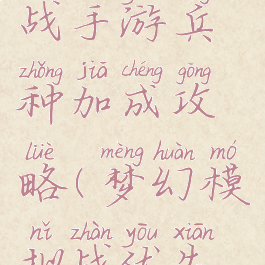 战手游兵
zhǒng jiā chéng gōng
种加成攻
lüè mèng huàn mó
略(梦幻模
nǐ zhàn yōu xiān
拟战优先